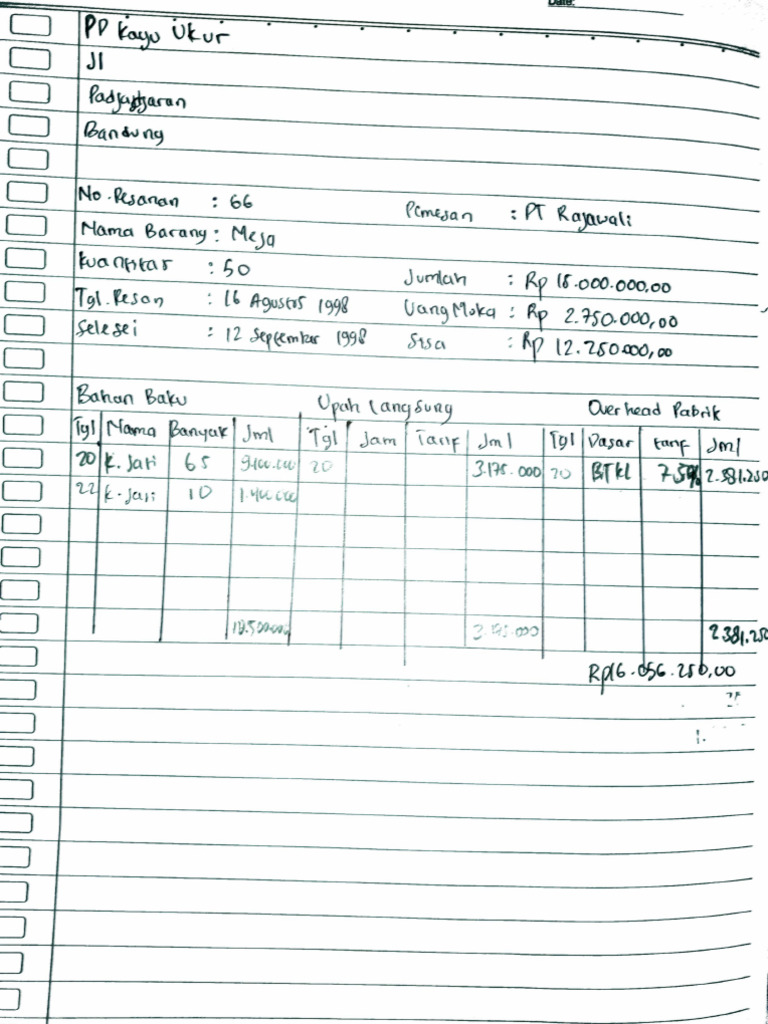 Date:
PD Kayu Ukur
Jl
Padjadjaran
Bandung
No. Pesanan : 66 Pemesan : PT Rajawali
Nama Barang : Meja
Kuantitas : 50 Jumlah : Rp 15.000.000,00
Tgl. Pesan : 16 Agustus 1998 Uang Muka : Rp 2.750.000,00
Selesei : 12 September 1998 Sisa : Rp 12.250.000,00
Bahan Baku Upah Langsung Overhead Pabrik
Tgl Nama Banyak Jml Tgl Jam Tarif Jml Tgl Dasar tarif Jml
20 K. Jati 65 9.100.000 20 3.175.000 20 BTKL 75% 2.381.250
22 K. Jati 10 1.400.000
10.500.000 3.175.000 2.381.250
Rp16.056.250,00